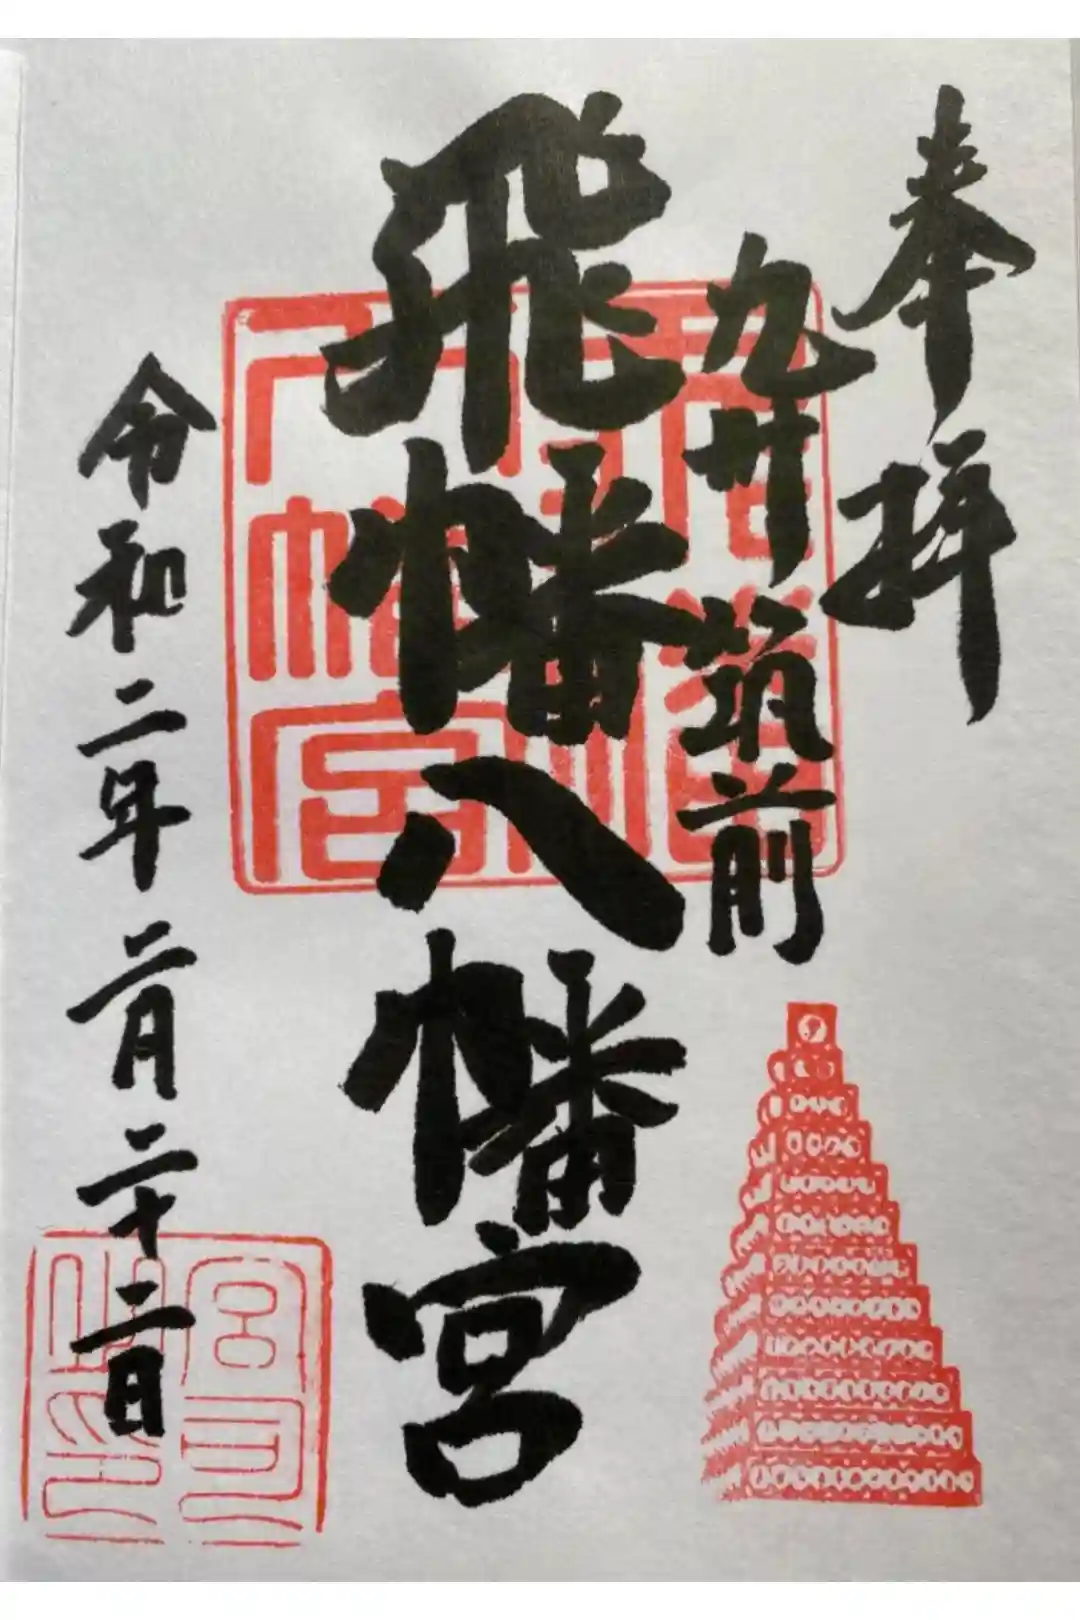 奉拝
九州筑前
飛幡八幡宮
令和二年二月二十二日
八幡宮
宮司
之印